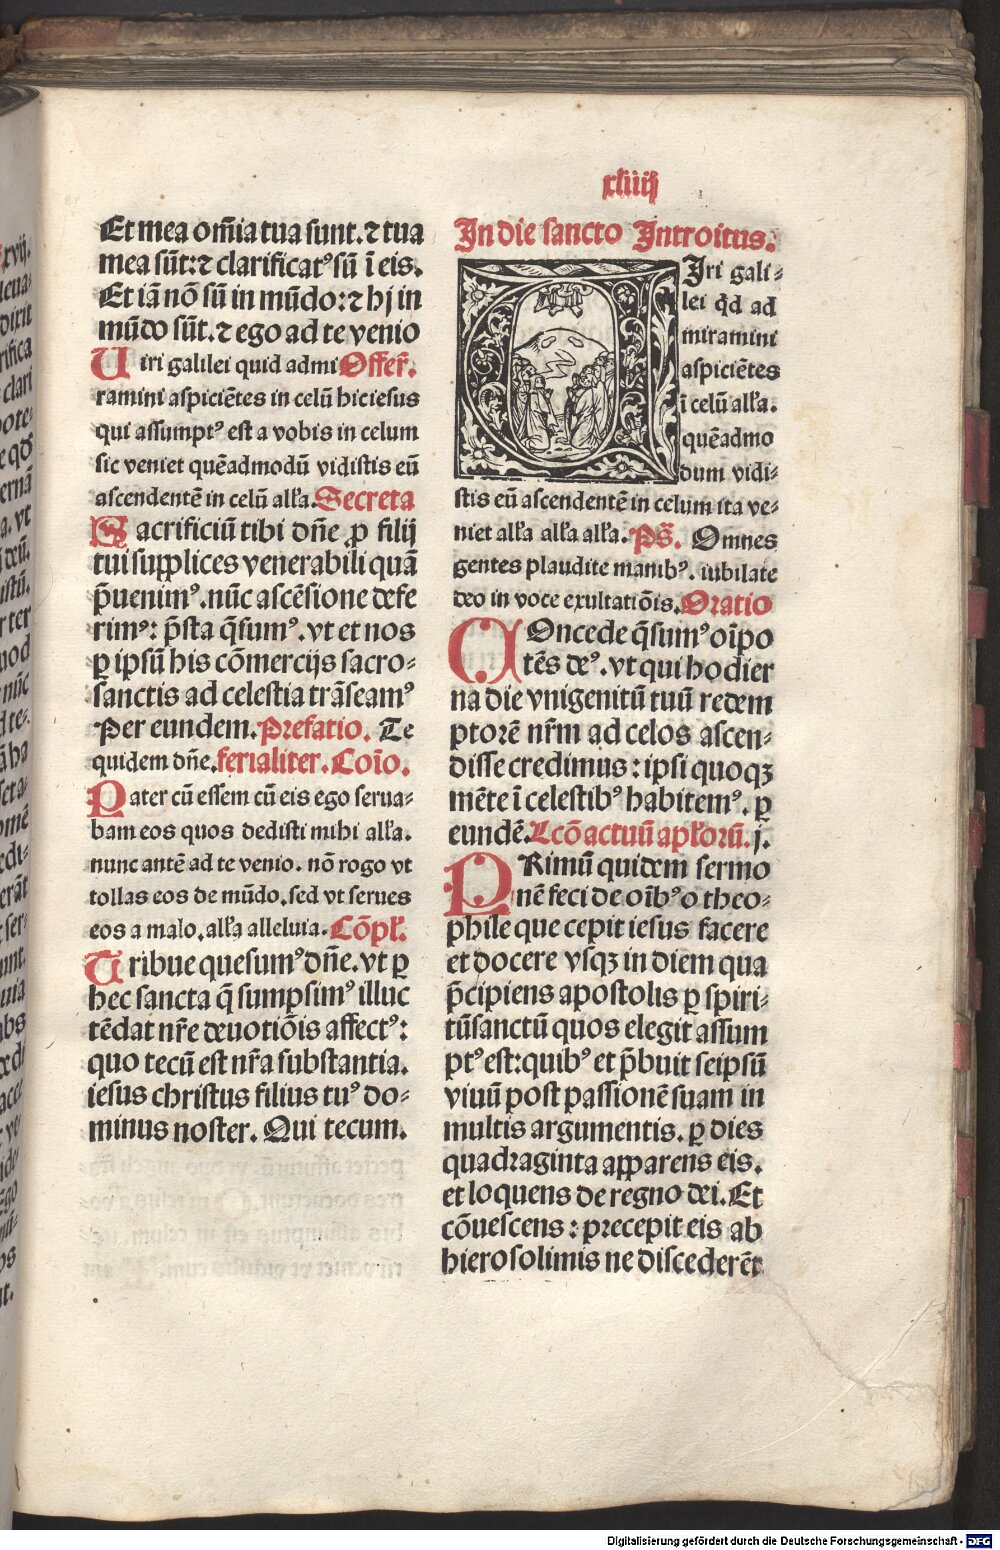 xliiij
Et mea om̄ia tua sunt. ⁊ tua
mea sūt: ⁊ clarificatꝰ sū ī eis.
Et iā nō sū in mūdo: ⁊ hj in
mūdo sūt. ⁊ ego ad te venio
Uiri galilei quid admi Offer̄.
ramini aspiciētes in celū hic iesus
qui assumptꝰ est a vobis in celum
sic veniet quēadmodū vidistis eū
ascendentē in celū allꝛa. Secreta
Sacrificiū tibi dn̄e ꝓ filij
tui supplices venerabili quā
p̄uenimꝰ. nūc ascēsione defe
rimꝰ: p̄sta q̄sumꝰ. vt et nos
ꝑ ipsū his cōmercijs sacro⸗
sanctis ad celestia trāseamꝰ
Per eundem. Prefatio. Te
quidem dn̄e. ferialiter. Coīo.
Pater cū essem cū eis ego serua⸗
bam eos quos dedisti mihi allꝛa.
nunc antē ad te venio. nō rogo vt
tollas eos de mūdo. sed vt serues
eos a malo. allꝛa alleluia. Cōpꝉ.
Tribue quesumꝰ dn̄e. vt ꝑ
hec sancta q̄ sumpsimꝰ illuc
tēdat nr̄e deuotiōis affectꝰ:
quo tecū est nr̄a substantia.
iesus christus filius tuꝰ do⸗
minus noster. Qui tecum.
In die sancto Introitus.
Uiri gali⸗
lei qd ad
miramini
aspiciētes
ī celū allꝛa.
quēadmo
dum vidi⸗
stis eū ascendentē in celum ita ve⸗
niet allꝛa allꝛa allꝛa. Ps̄. Omnes
gentes plaudite manibꝰ. iubilate
deo in voce exultatiōis. Oratio
COncede q̄sumꝰ oīpo
tēs deꝰ. vt qui hodier
na die vnigenitū tuū redem
ptorē nr̄m ad celos ascen⸗
disse credimus: ipsi quoqꝫ
mēte ī celestibꝰ habitemꝰ. ꝑ
eundē. Lcō actuū apꝉorū. j.
PRimū quidem sermo
nē feci de oībꝰ o theo⸗
phile que cepit iesus facere
et docere vsqꝫ in diem qua
p̄cipiens apostolis ꝑ spiri⸗
tūsanctū quos elegit assum
ptꝰ est: quibꝰ et p̄buit seipsū
viuū post passionē suam in
multis argumentis. ꝑ dies
quadraginta apparens eis.
et loquens de regno dei. Et
cōuescens: precepit eis ab
hierosolimis ne discederēt
Digitalisierung gefördert durch die Deutsche Forschungsgemeinschaft - DFG